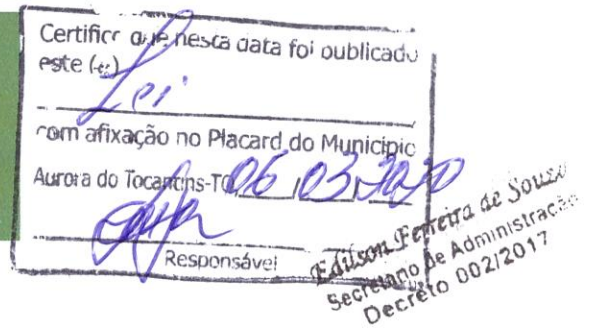 Certifico que nesta data foi publicado
este (a)
Lei
com afixação no Placard do Municipio
Aurora do Tocantins-TO, 06 / 03 / 2020
Responsável
Edilson Ferreira de Souza
Secretario de Administração
Decreto 002/2017